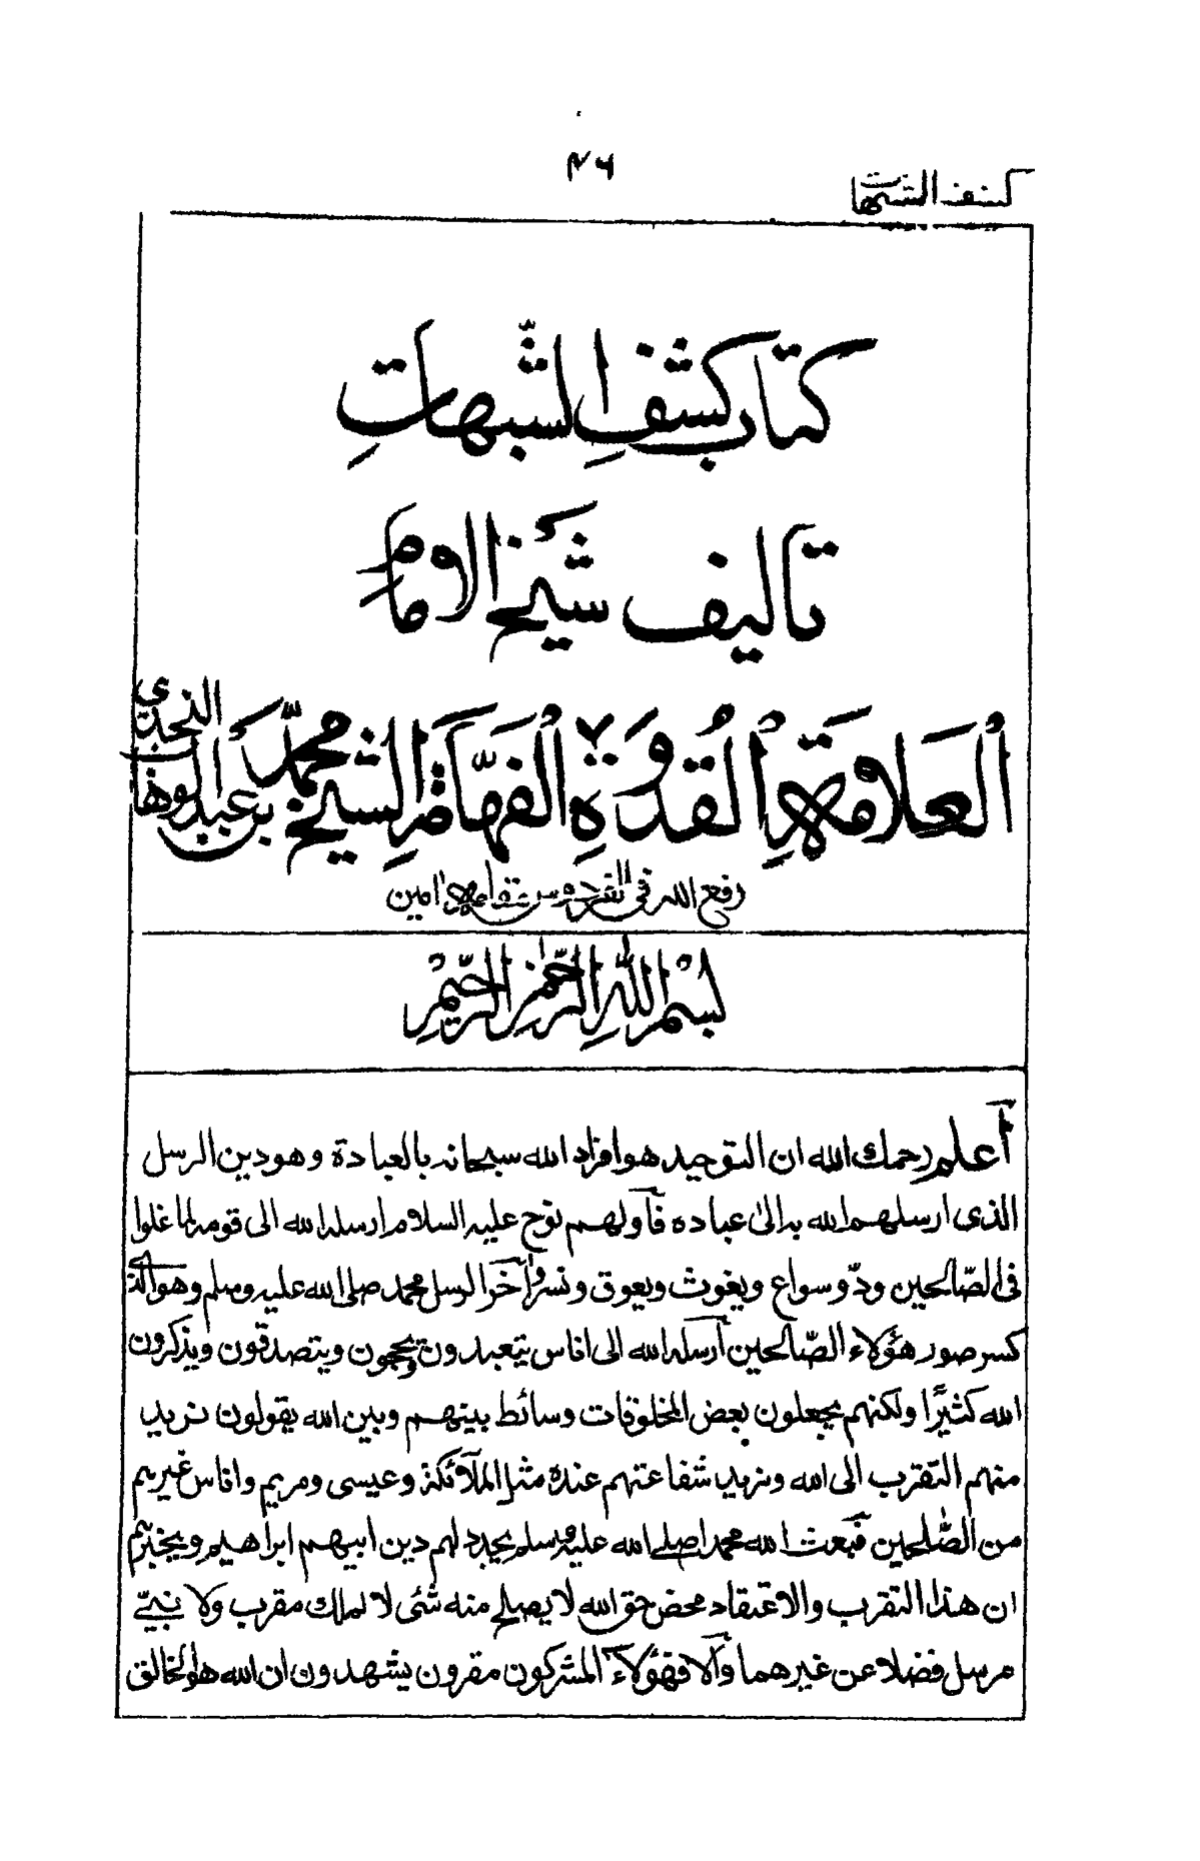 ٤٦
كشف الشبهات
كتاب كشفِ الشّبهاتِ
تاليف شيخ الامام
العلامة القدوة الفهامة الشيخ محمّد بن عبد الوهاب النجدي
رفع الله في الفردوس مقامه امين
بسم الله الرحمن الرحيم
أعلم رحمك الله ان التوحيد هو افراد الله سبحانه بالعبادة وهو دين الرسل
الذى ارسلهم الله به الىٰ عباده فآولهم نوح عليه السلام ارسله الله الى قومه لما غلوا
فى الصّالحين ودّ وسواع ويغوث ويعوق ونسر وآخر الرسل محمد صلى الله عليه وسلم وهو الذ
كسر صور هؤلاء الصّالحين آرسله الله الى اناس يتعبدون ويحجون ويتصدقون ويذكرون
الله كثيرًا ولكنهم يجعلون بعض المخلوقات وسائط بينهم وبين الله يقولون نريد
منهم التقرب الى الله ونريد شفاعتهم عنده مثل الملآئكة وعيسى ومريم واناس غيرهم
من الصّٰلحين فبعث الله محمدا صلے الله عليه وسلم يجدد لهم دين ابيهم ابراهيم ويخبرهم
ان هذا التقرب والاعتقاد محض حق الله لا يصلح منه شئى لا لملك مقرب ولا نبىّ
مرسل فضلا عن غيرهما وآلا فهؤلآء المشركون مقرون يشهدون ان الله هو الخالق